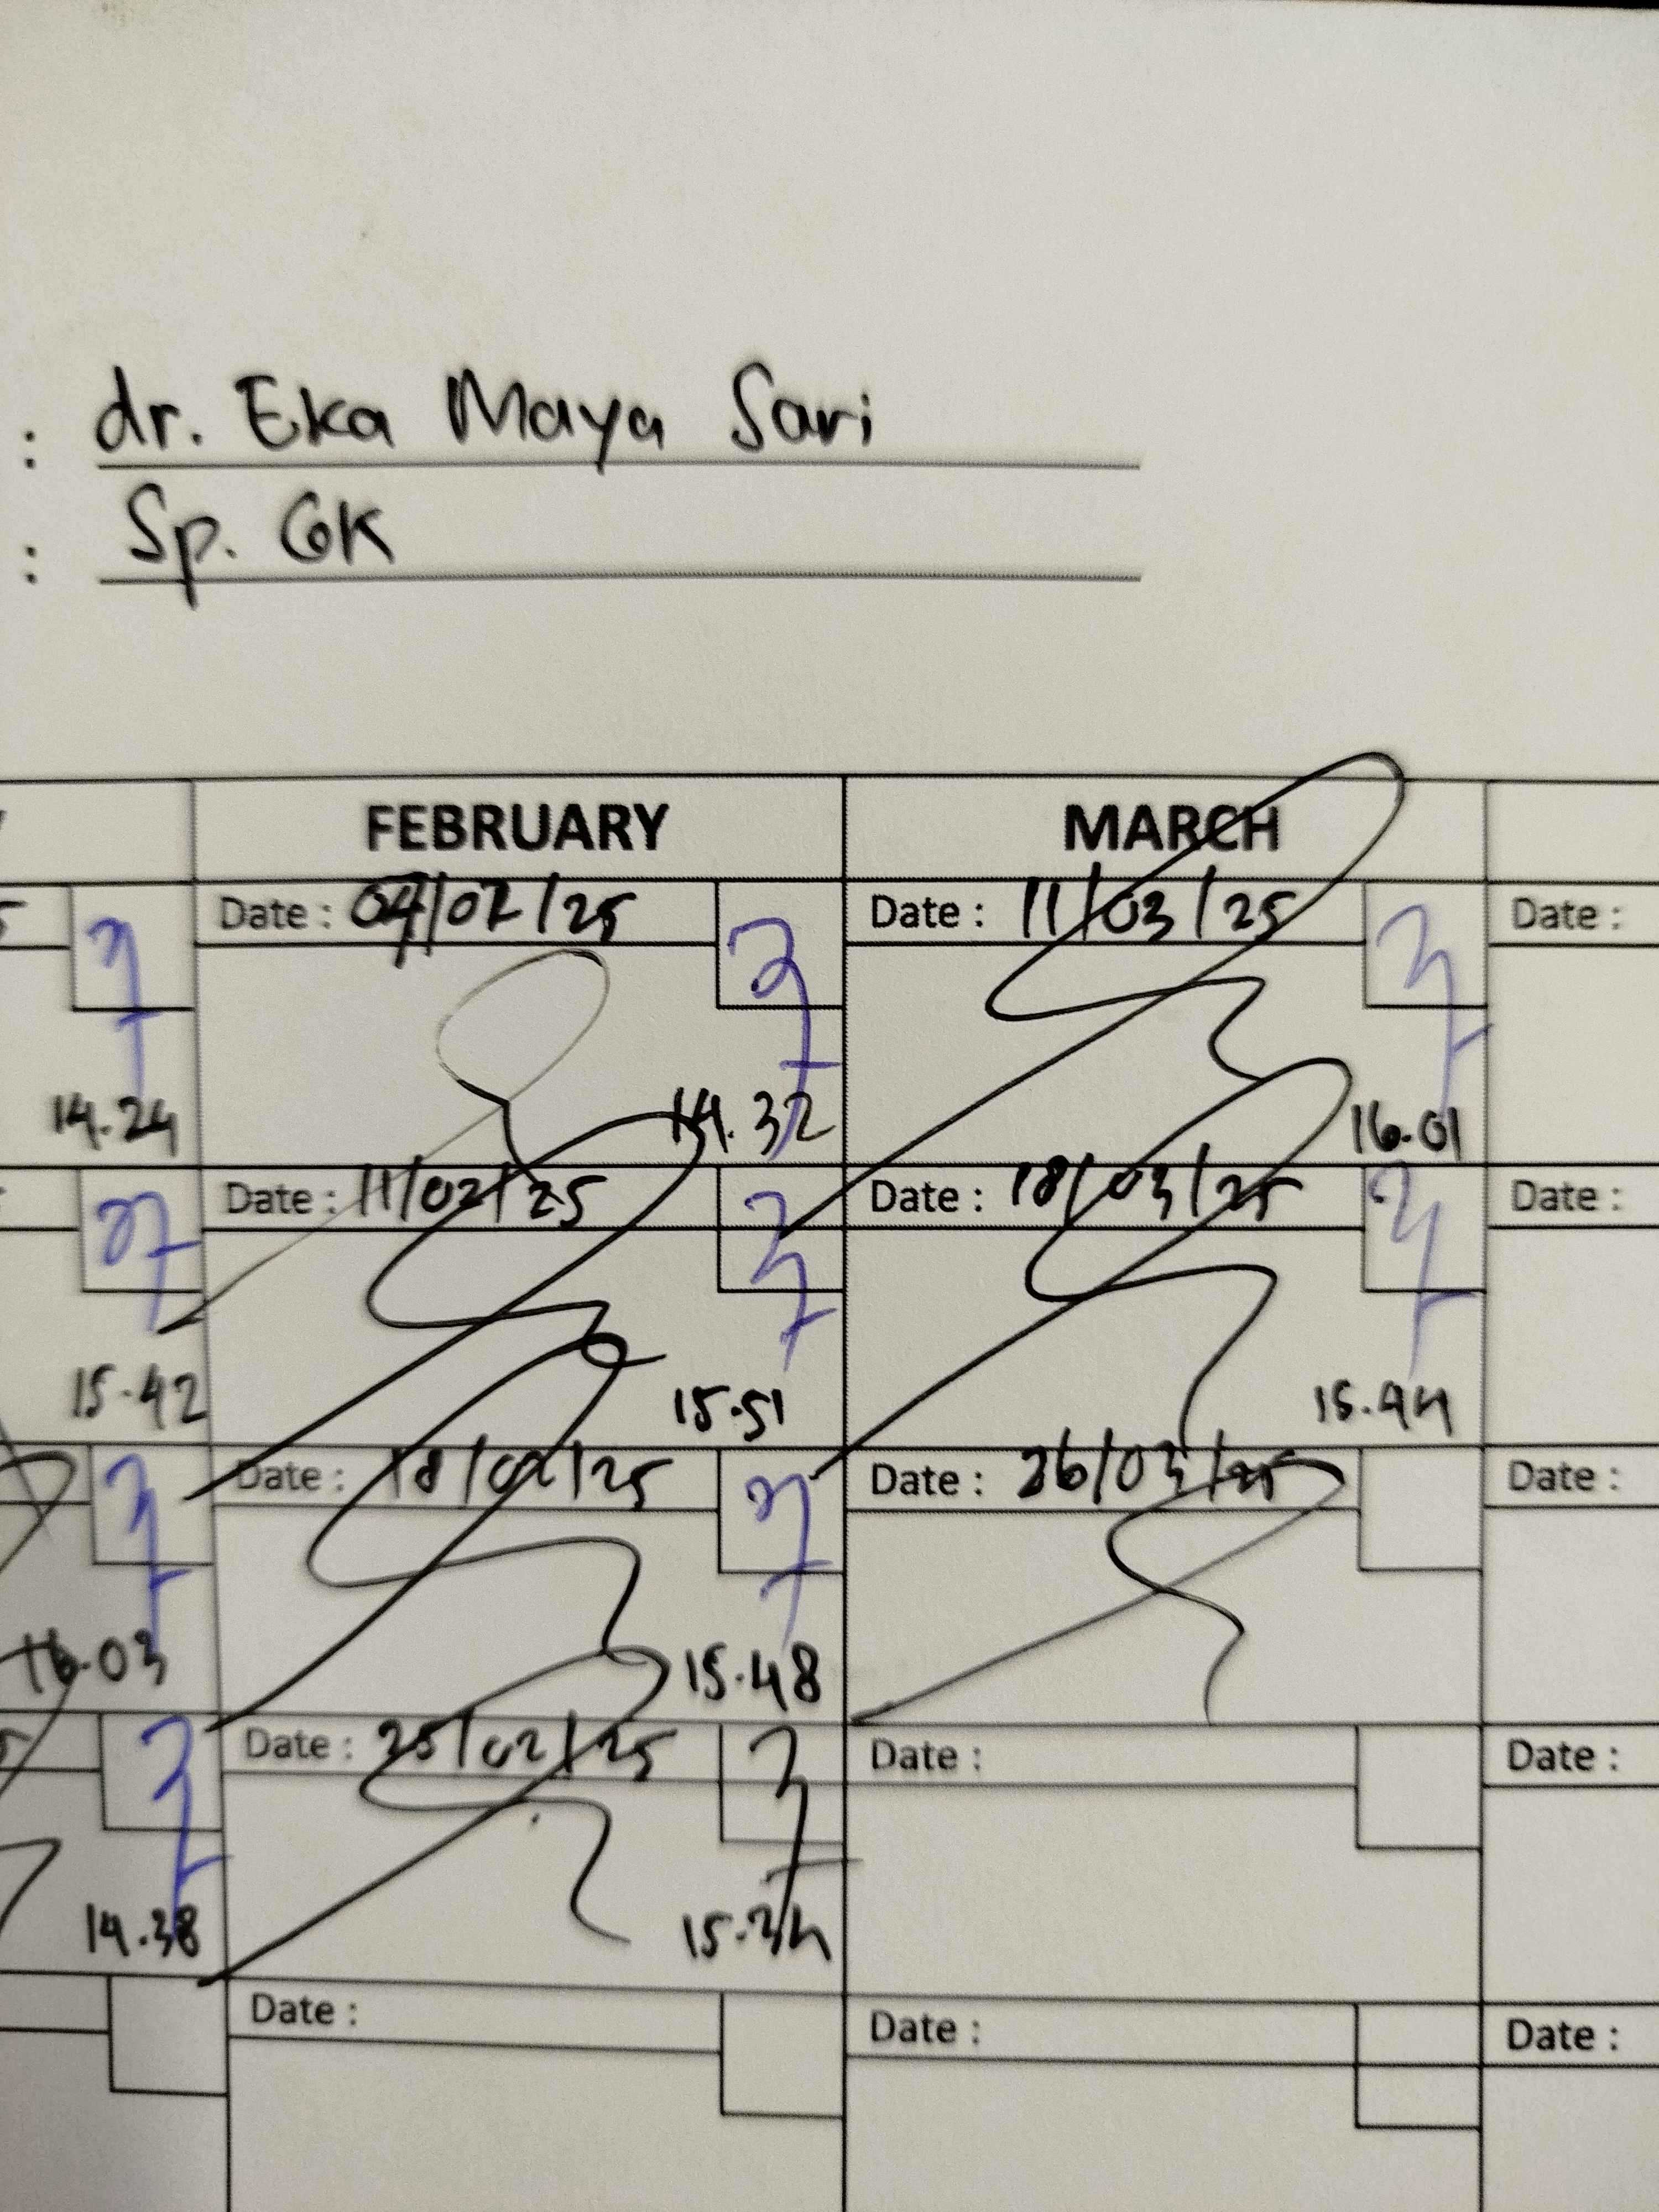 : dr. Eka Maya Sari
: Sp. GK
FEBRUARY MARCH
Date : 04/02/25 Date : 11/03/25 Date :
14.24 14.32 16.01
Date : 11/02/25 Date : 18/03/25 Date :
15.42 15.51 15.44
Date : 18/02/25 Date : 26/03/25 Date :
16.03 15.48
Date : 25/02/25 Date : Date :
14.38 15.34
Date : Date : Date :